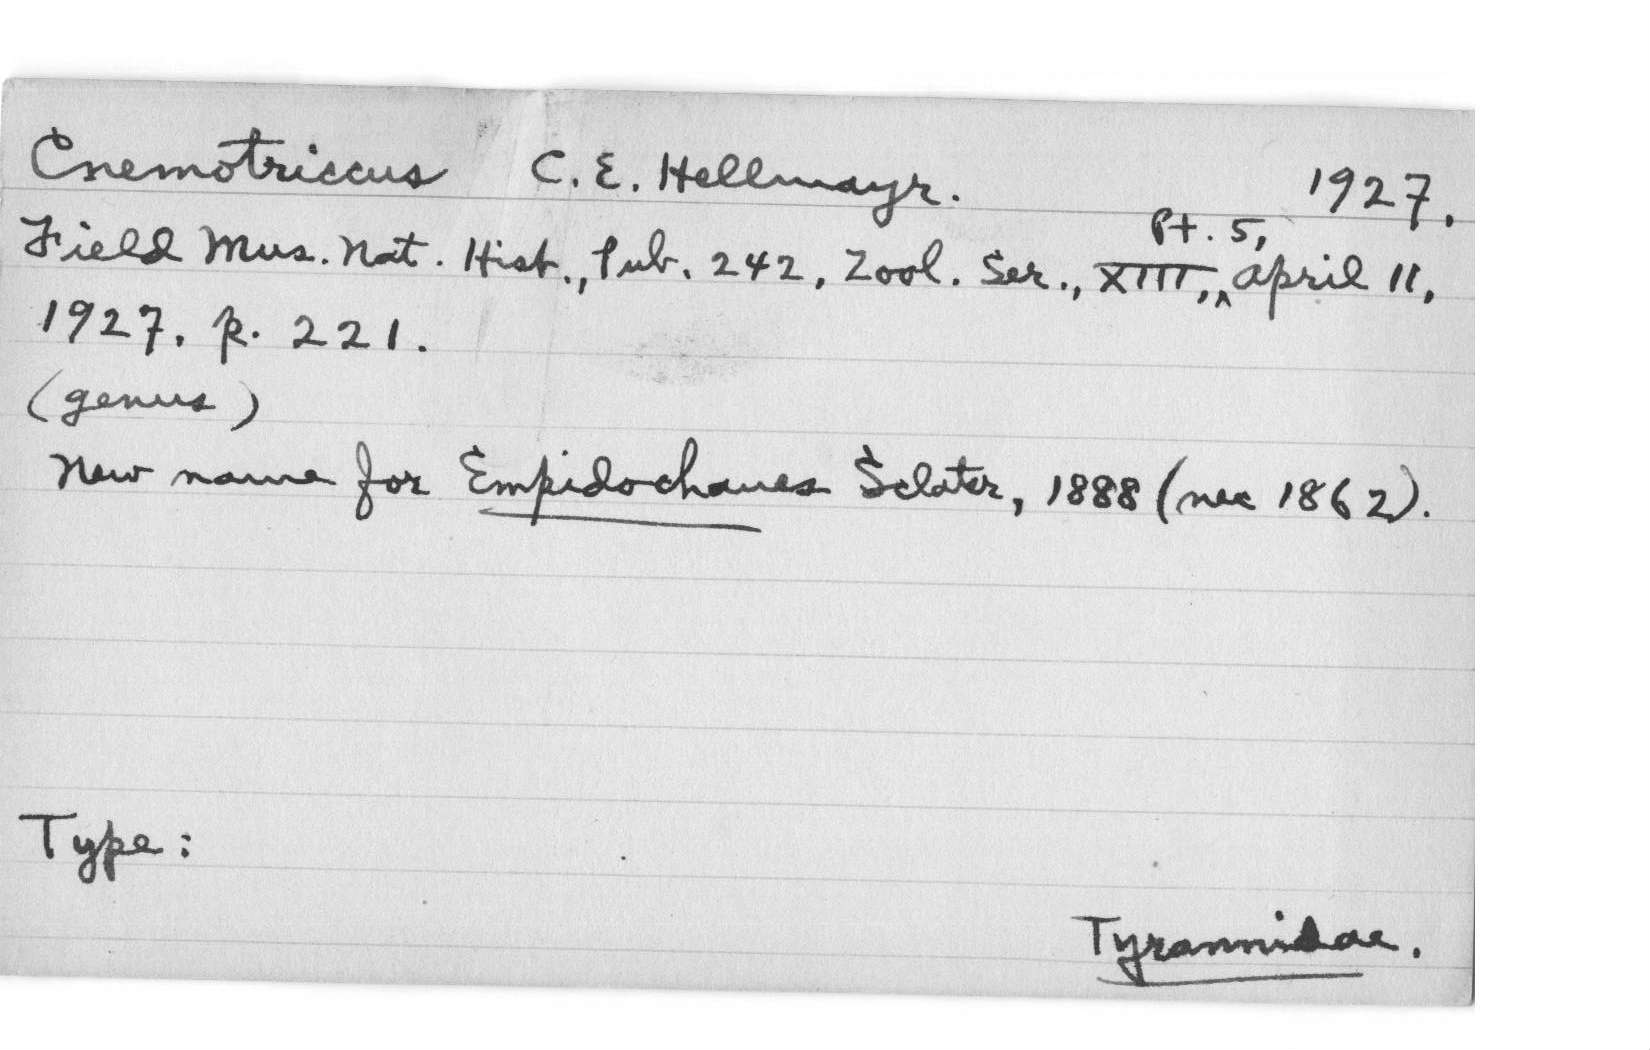 Cnemotriccus C. E. Hellmayr. 1927.
Field Mus. Nat. Hist., Pub. 242, Zool. Ser., XIII, Pt. 5, April 11,
1927. p. 221.
(genus)
New name for Empidochanes Sclater, 1888 (nec 1862).
Type:
Tyrannidae.